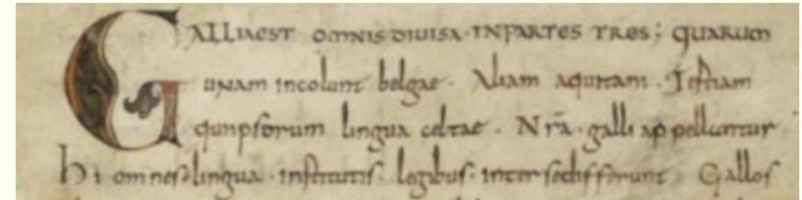 GALLIAEST OMNIS DIUISA · INPARTES TRES ; QUARUM
unam incolunt belgae · Aliam aquitani · Tertiam
quiipsorum lingua celtae · Nr̄a · galli appellantur
hi omnes lingua · institutis · legibus · inter sediffferunt Gallos